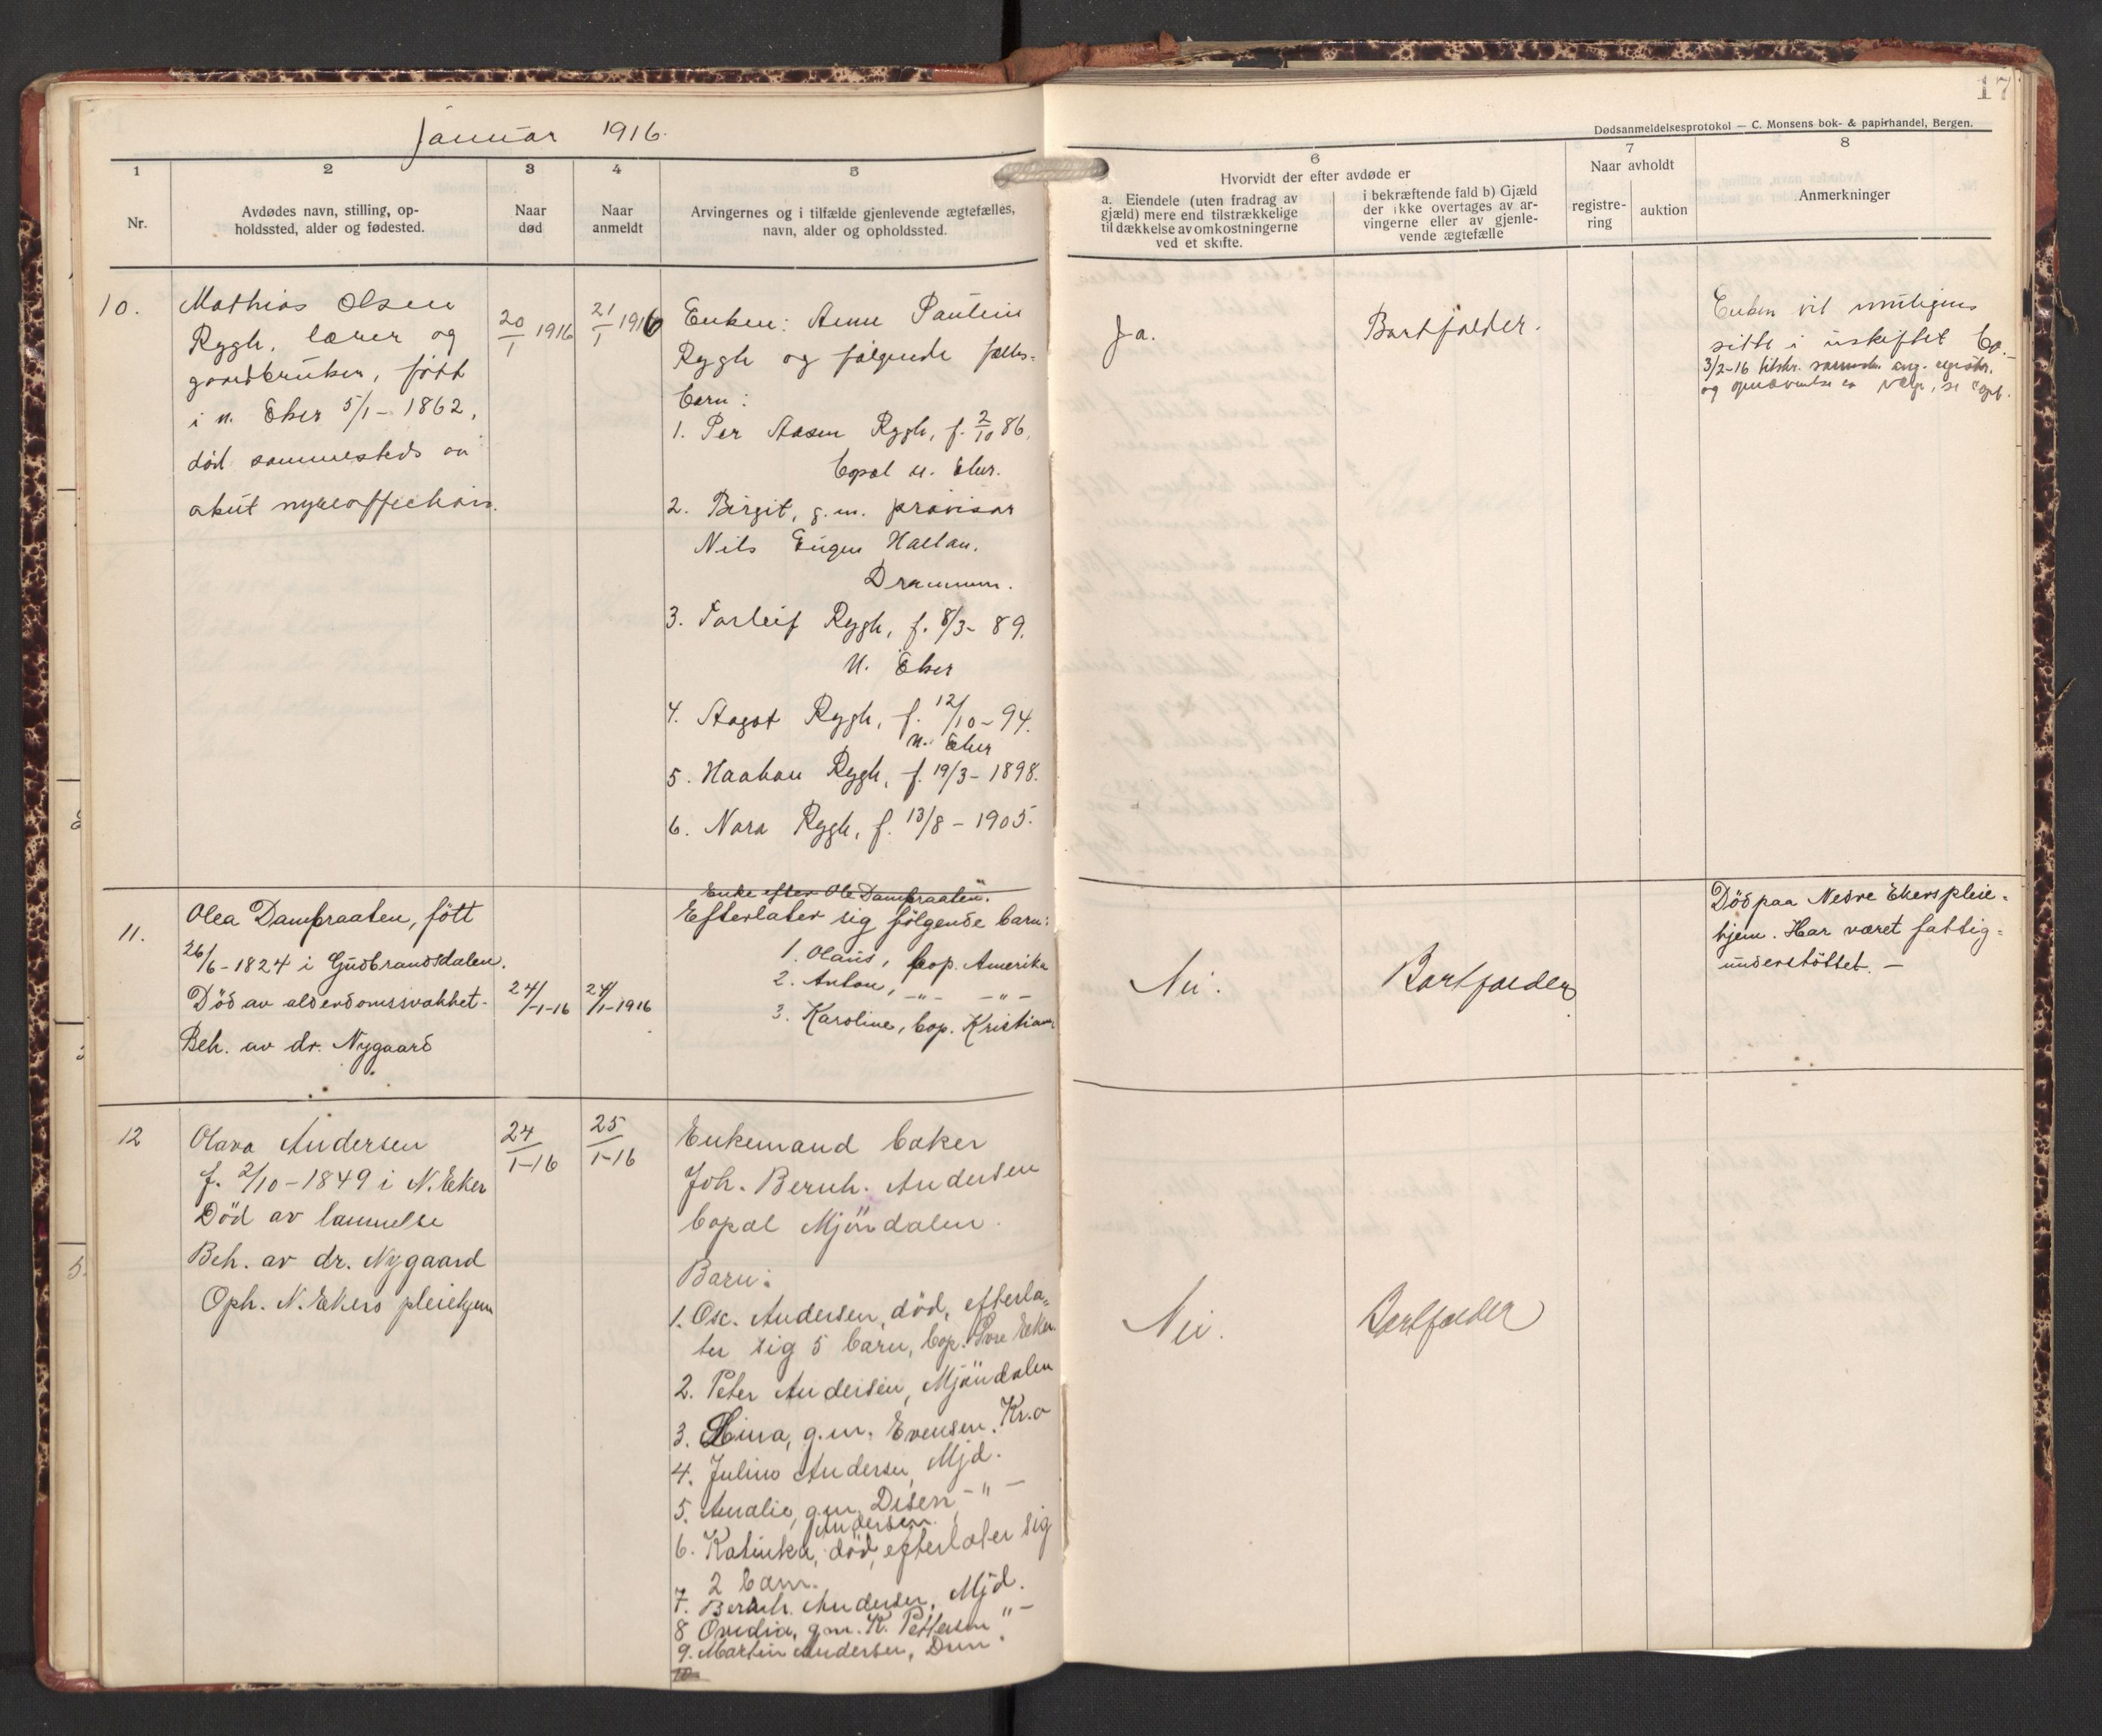 Januar 1916.
17
Dødsanmeldelsesprotokol — C. Monsens bok- & papirhandel, Bergen.
1
Nr.
2
Avdødes navn, stilling, op-
holdssted, alder og fødested.
3
Naar
død
4
Naar
anmeldt
5
Arvingernes og i tilfælde gjenlevende ægtefælles,
navn, alder og opholdssted.
6
Hvorvidt der efter avdøde er
a. Eiendele (uten fradrag av
gjæld) mere end tilstrækkelige
til dækkelse av omkostningerne
ved et skifte.
i bekræftende fald b) Gjæld
der ikke overtages av ar-
vingerne eller av gjenle-
vende ægtefælle
7
Naar avholdt
registre-
ring
auktion
8
Anmerkninger
10.
Mathias Olsen
Rygh, lærer og
gaardbruker, født
i n. Eker 5/1 - 1862,
död sammesteds av
akut nyreaffektion.
20/1 1916
21/1 1916
Enken: Anne Pauline
Rygh og følgende fælles-
barn:
1. Per Aasen Rygh, f. 2/10 86,
bopæl n. Eker.
2. Birgit, g.m. provisor
Nils Eugen Hallan,
Drammen.
3. Torleif Rygh, f. 8/3 - 89.
N. Eker
4. Aagot Rygh, f. 12/10 - 94.
N. Eker
5. Haakon Rygh, f. 19/3 - 1898.
6. Nora Rygh, f. 13/8 - 1905.
Ja.
Bortfalder.
Enken vil muligens
sitte i uskiftet bo.
3/2-16 tilskr.
og
11.
Olea Dambraaten, fött
26/6 - 1824 i Gudbrandsdalen.
Död av alderdomssvakhet.
Beh. av dr. Nygaard
24/1-16
24/1-1916
Enke efter Ole Dambraaten.
Efterlater sig følgende barn:
1. Olaus, bop. Amerika
2. Anton, -"- -"-
3. Karoline, bop. Kristiania
Nei.
Bortfalder
Död paa Nedre Ekers pleie-
hjem. Har været fattig-
understöttet. —
12
Olava Andersen
f. 2/10 - 1849 i N. Eker
Död av lammelse
Beh. av dr. Nygaard
Oph. N. Ekers pleiehjem
24/1-16
25/1-16
Enkemand baker
Joh. Bernh. Andersen
bopæl Mjöndalen.
Barn:
1. Osc. Andersen, död, efterla-
ter sig 5 barn, bop. Övre Eker.
2. Peter Andersen, Mjöndalen
3. Lina, g.m. Evensen, Kr.a
4. Julius Andersen, Mjd.
5. Amalie, g.m. Disen -"-
Andersen
6. Katinka, död, efterlater sig
2 barn.
7. Bernh. Andersen, Mjd.
8 Ovidia, g.m. K. Pettersen "-
9. Martin Andersen, Drm.
10
Nei.
Bortfalder